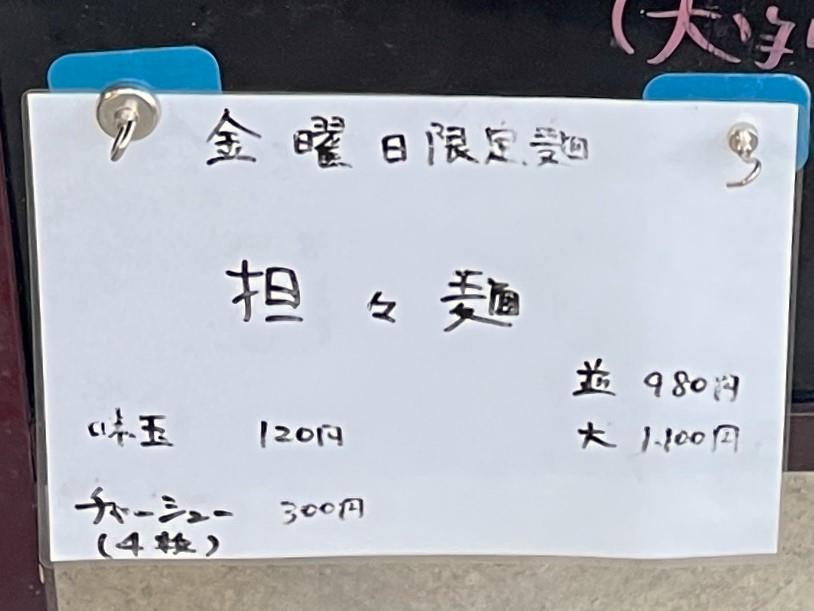 (大
金曜日限定麺
担々麺
並 980円
味玉 120円
大 1.100円
チャーシュー 300円
(4枚)